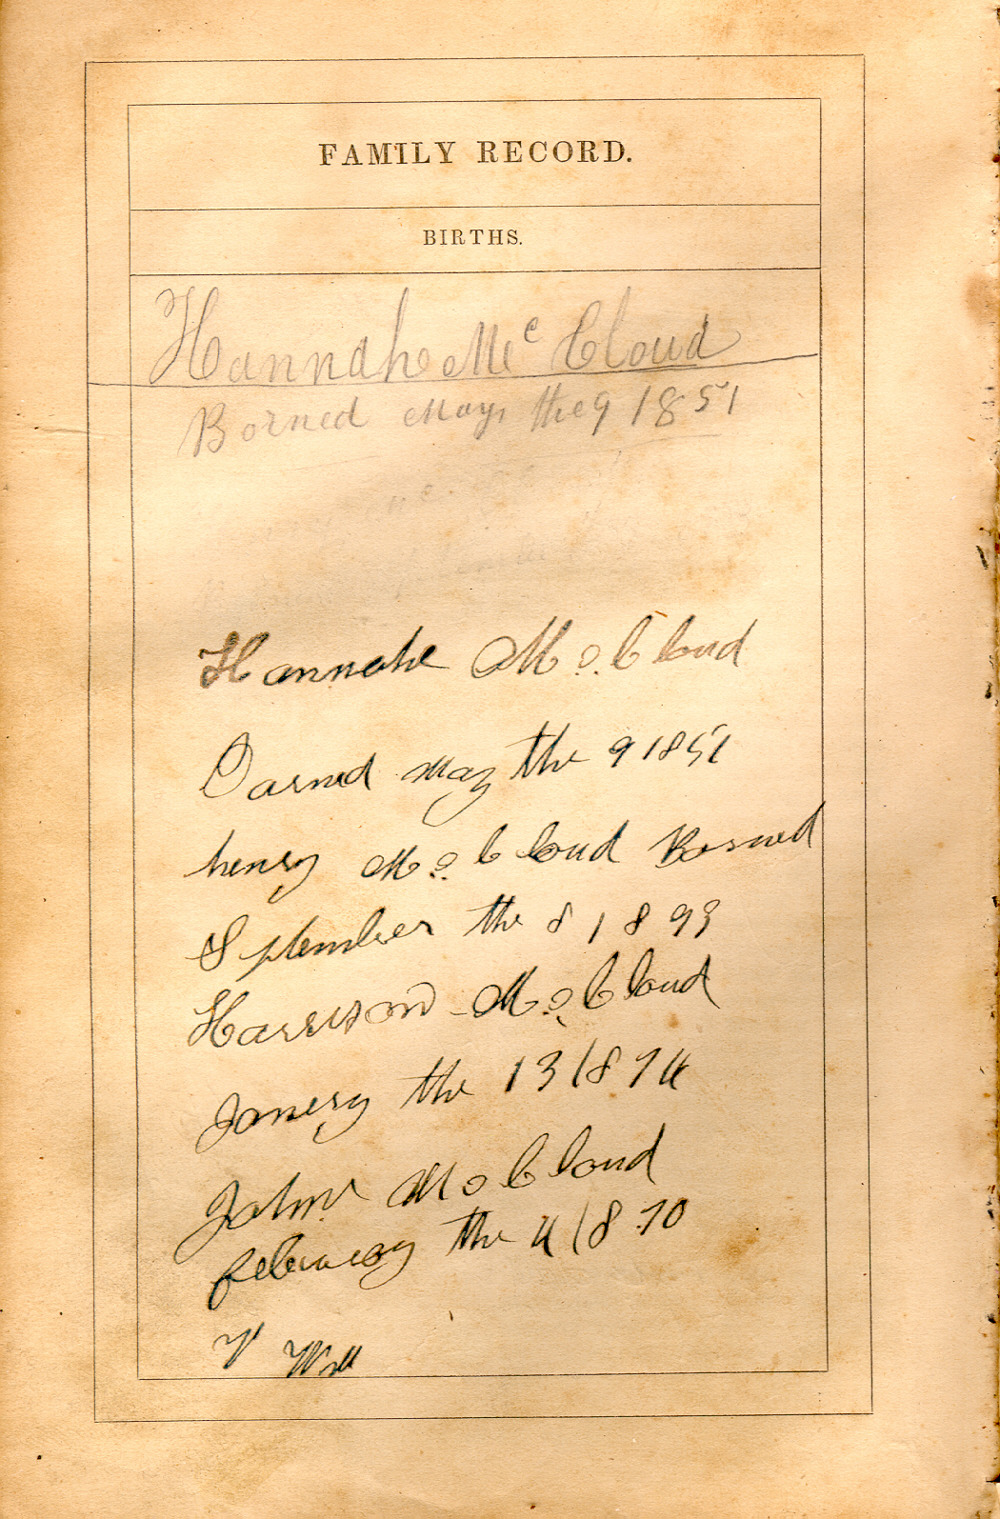 FAMILY RECORD.
BIRTHS.
Hannah Mc Cloud
Borned May, the 9 1851
Hannahe Mc. Cloud
Borned May the 9 1851
henery Mc. Cloud Borned
September the 8 1893
Harrison Mc. Cloud
Janery the 13 1874
John Mc Cloud
february the 4 1870